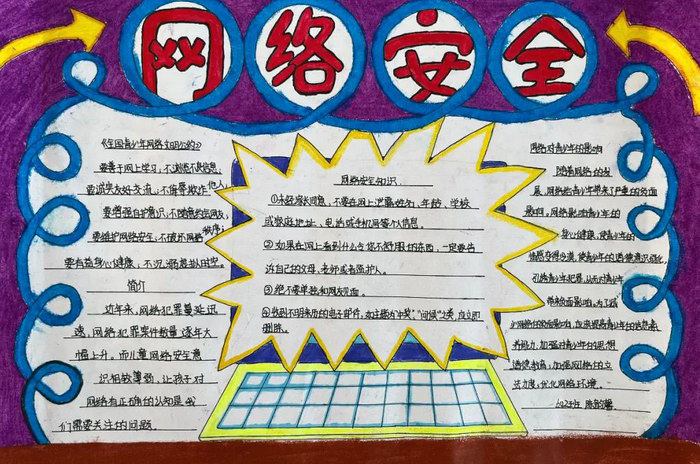 网络安全
《全国青少年网络文明公约》
要善于网上学习，不浏览不良信息，
要诚实友好交流，不侮辱欺诈他人，
要增强自护意识，不随意约会网友，
要维护网络安全，不破坏网络秩序，
要有益身心健康，不沉溺虚拟时空。
简介
近年来，网络犯罪蔓延迅
速，网络犯罪案件数量逐年大
幅上升。而儿童网络安全意
识相较薄弱，让孩子对
网络有正确的认知是我
们需要关注的问题。
网络安全知识
①未经家长同意，不要在网上泄露姓名、年龄、学校
或家庭地址、电话或手机网等个人信息。
②如果在网上看到什么令你不舒服的东西，一定要告
诉自己的父母、老师或者监护人。
③绝不要单独和网友见面。
④收到不明来历的电子邮件，如主题为“中奖”、“问候”之类，应立即
删除。
网络对青少年的影响
随着网络的发
展，网络给青少年带来了严重的负面
影响，网络影响青少年的
身心健康，使青少年的
情感变得冷漠，使青少年的道德意识弱化，
引发青少年犯罪，从而对青少年
带来负面影响，为了减
少网络的负面影响，加强提高青少年的信息素
养能力，加强对青少年的思想
道德教育，加强网络的立
法力度，优化网络环境。